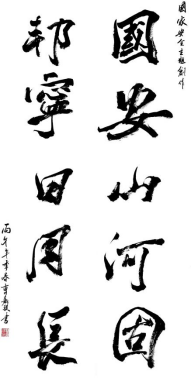 國家安全主題創作
國安山河固
邦寧日月長
丙午年春
書